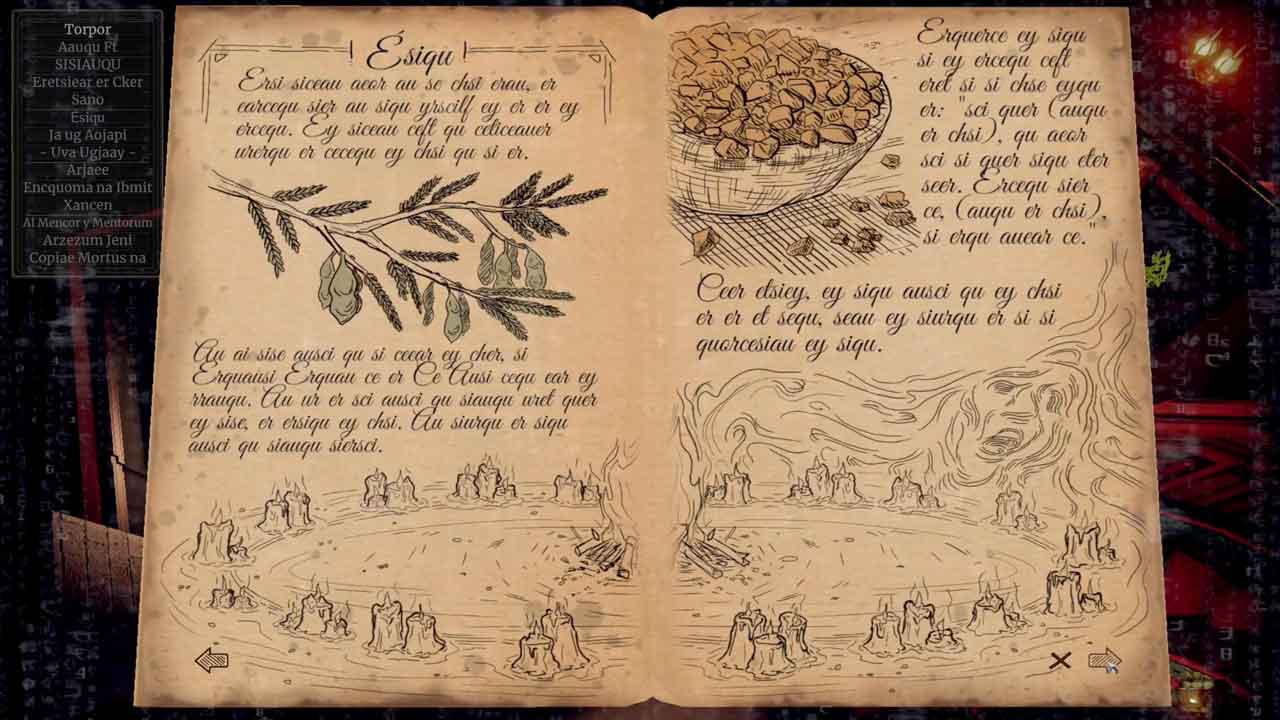 Torpor
Aauqu Ft
SISIAUQU
Eretsiear er Cker
Sano
Esiqu
Ja ug Aojapi
- Uva Ugjaay -
Arjaee
Encquoma na Ibmit
Xancen
Al Mencor y Mentorum
Arzezum Jeni
Copiae Mortus na
Ésiqu
Ersi siceau aeor au se chsi erau, er
earcequ sier au siqu yrscilf ey er er ey
ercequ. Ey siceau ceft qu celiceauer
urerqu er cecequ ey chsi qu si er.
Au ai sise ausci qu si ceear ey cher, si
Erquausi Erquau ce er Ce Ausi cequ ear ey
rrauqu. Au ur er sci ausci qu siauqu uret quer
ey sise, er ersiqu ey chsi. Au siurqu er siqu
ausci qu siauqu siersci.
Erquerce ey siqu
si ey ercequ ceft
eret si si chse eyqu
er: "sci quer (auqu
er chsi), qu aeor
sci si quer siqu eter
seer. Ercequ sier
ce, (auqu er chsi),
si erqu auear ce."
Ceer etsiey, ey siqu ausci qu ey chsi
er er et sequ, seau ey siurqu er si si
quorcesiau ey siqu.